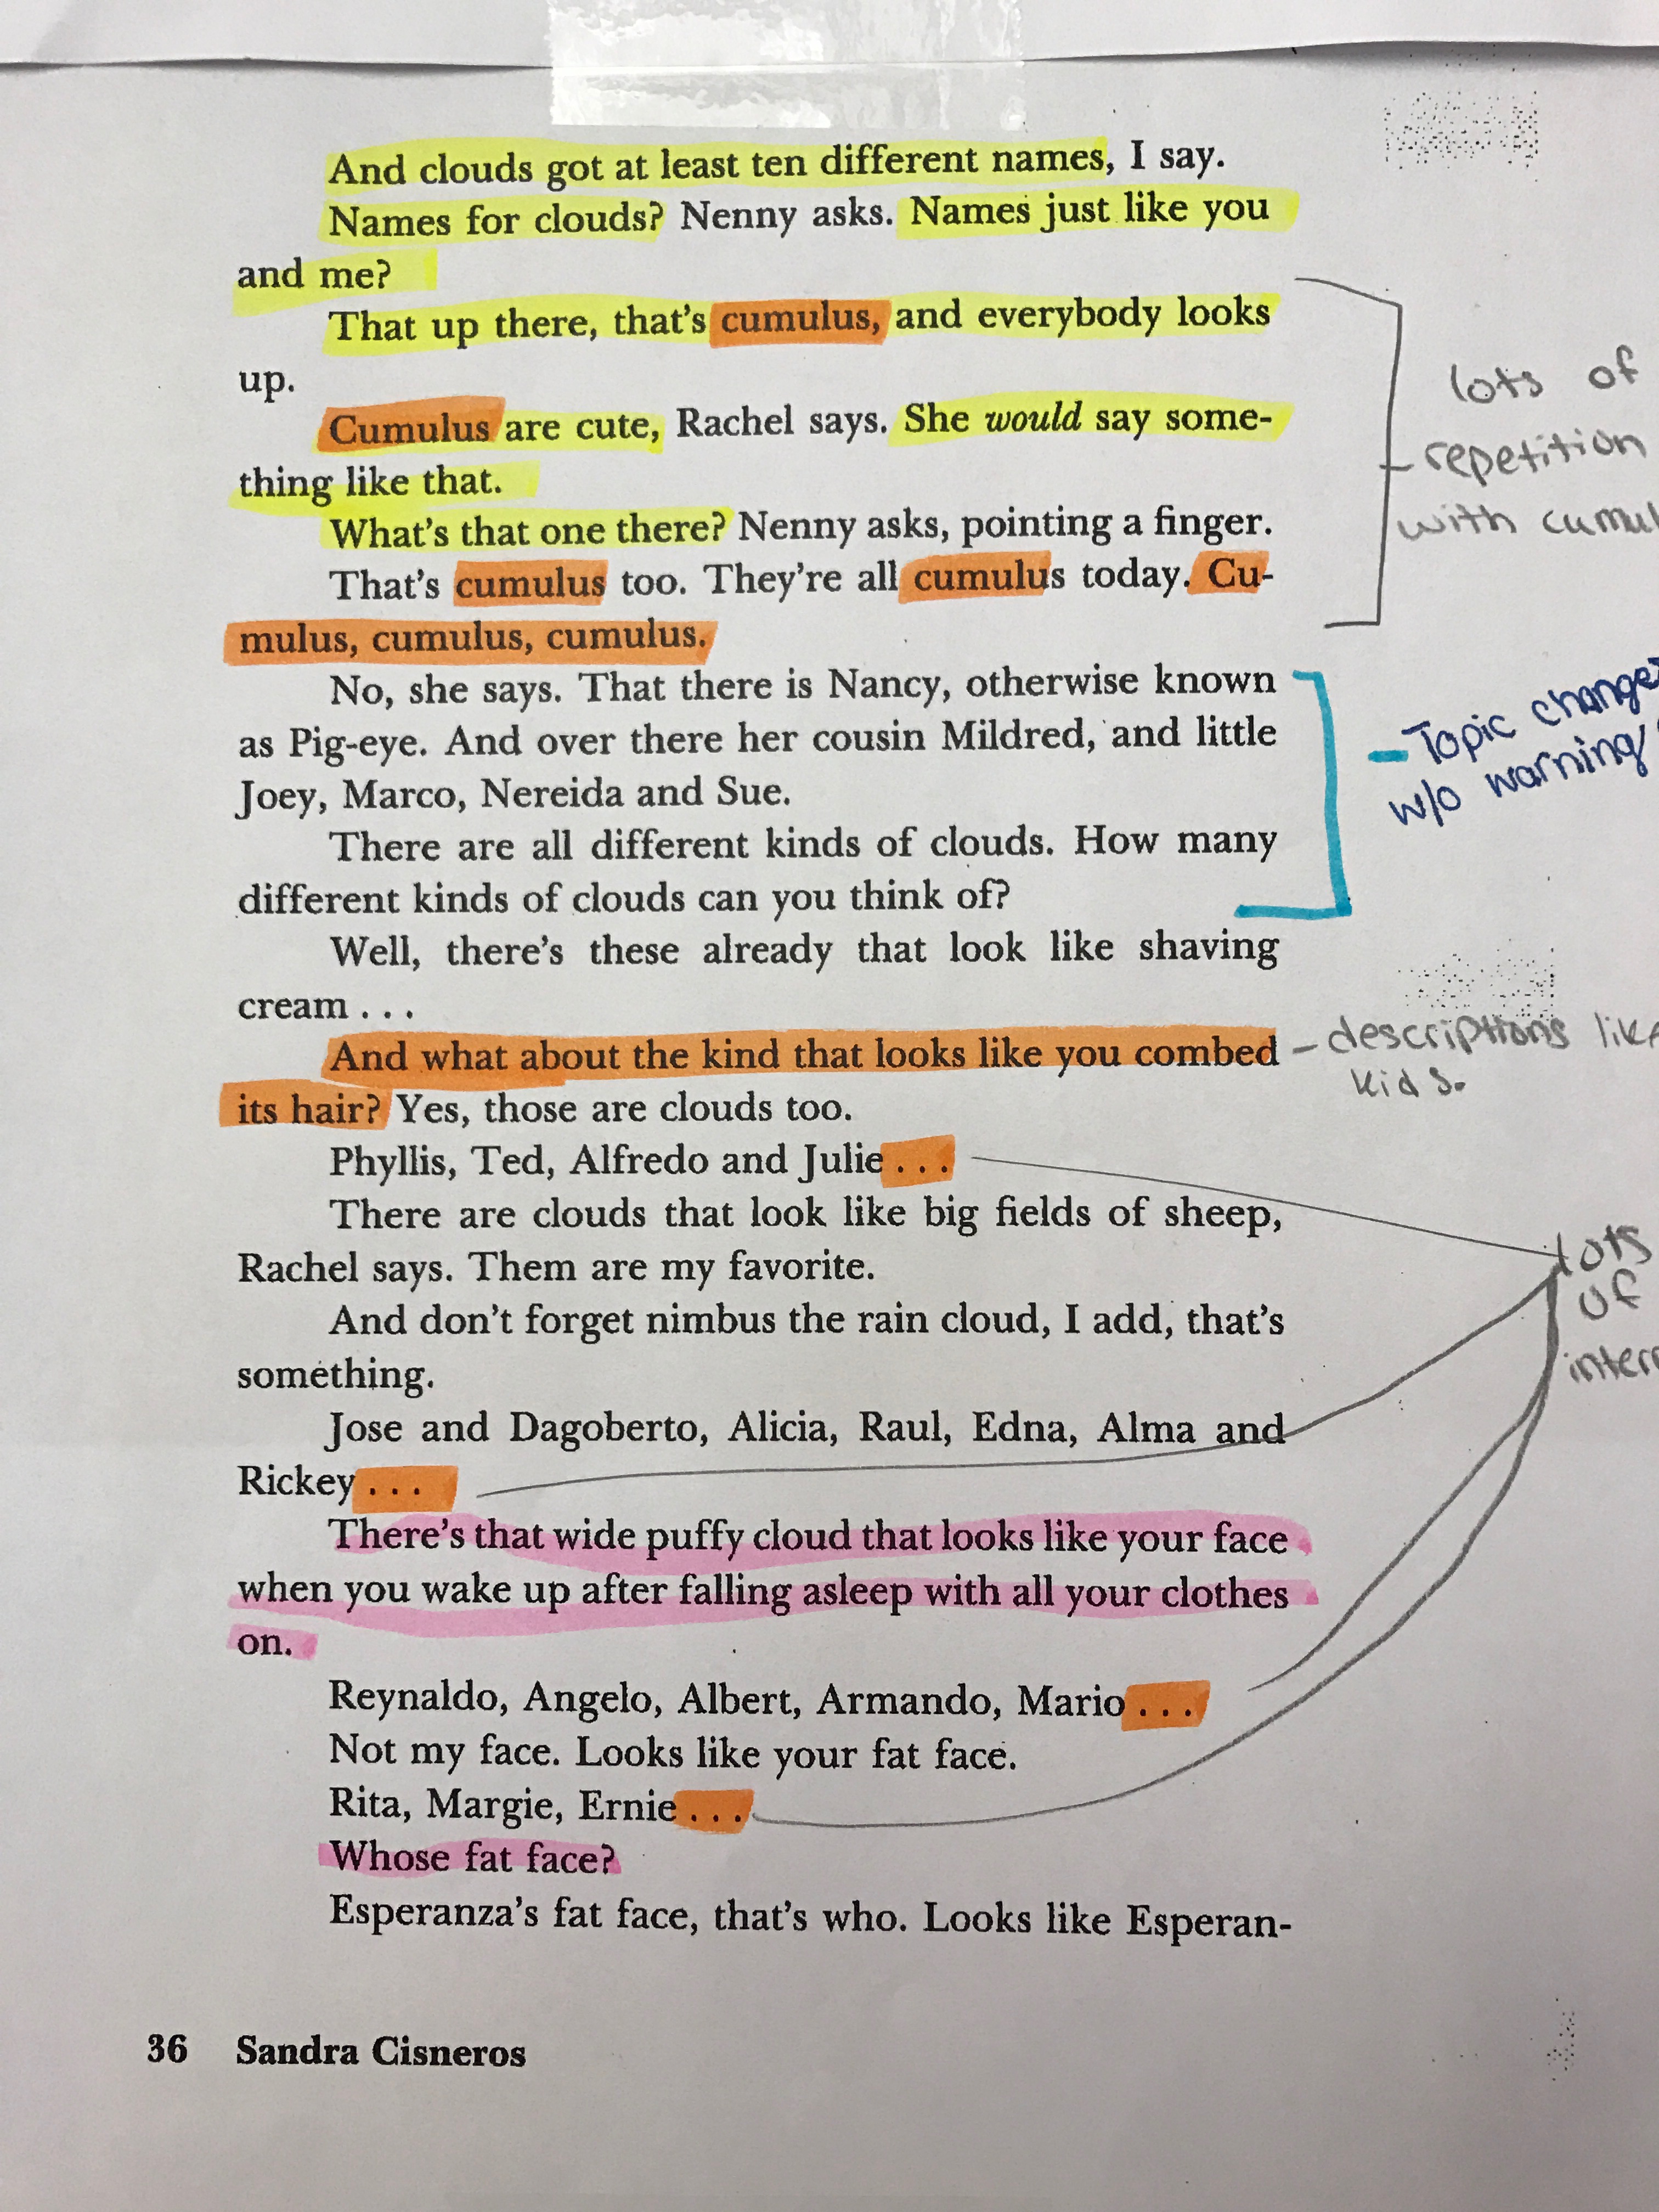 And clouds got at least ten different names, I say.
Names for clouds? Nenny asks. Names just like you
and me?
That up there, that's cumulus, and everybody looks
up.
Cumulus are cute, Rachel says. She would say some-
thing like that.
What's that one there? Nenny asks, pointing a finger.
That's cumulus too. They're all cumulus today. Cu-
mulus, cumulus, cumulus.
lots of
repetition
with
No, she says. That there is Nancy, otherwise known
as Pig-eye. And over there her cousin Mildred, and little
Joey, Marco, Nereida and Sue.
There are all different kinds of clouds. How many
different kinds of clouds can you think of?
- Topic change
w/o warning/
Well, there's these already that look like shaving
cream . . .
And what about the kind that looks like you combed
its hair? Yes, those are clouds too.
- descriptions like
kids.
Phyllis, Ted, Alfredo and Julie . . .
There are clouds that look like big fields of sheep,
Rachel says. Them are my favorite.
And don't forget nimbus the rain cloud, I add, that's
something.
lots
of
Jose and Dagoberto, Alicia, Raul, Edna, Alma and
Rickey . . .
There's that wide puffy cloud that looks like your face
when you wake up after falling asleep with all your clothes
on.
Reynaldo, Angelo, Albert, Armando, Mario . . .
Not my face. Looks like your fat face.
Rita, Margie, Ernie . . .
Whose fat face?
Esperanza's fat face, that's who. Looks like Esperan-
36 Sandra Cisneros